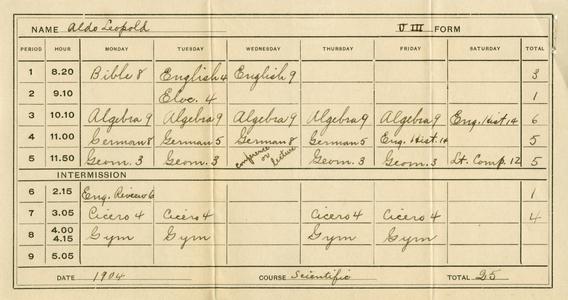 NAME Aldo Leopold U III FORM
PERIOD HOUR MONDAY TUESDAY WEDNESDAY THURSDAY FRIDAY SATURDAY TOTAL
1 8.20 Bible 8 English 4 English 9 3
2 9.10 Eloc. 4 1
3 10.10 Algebra 9 Algebra 9 Algebra 9 Algebra 9 Algebra 9 Eng. Hist. 14 6
4 11.00 German 8 German 5 German 8 German 4 Eng. Hist. 14 5
5 11.50 Geom. 3 Geom. 3 conference or lecture Geom. 3 Geom. 3 Lt. Comp. 12 5
INTERMISSION
6 2.15 Eng. Review 6 1
7 3.05 Cicero 4 Cicero 4 Cicero 4 Cicero 4 4
8 4.00 4.15 Gym Gym Gym Gym
9 5.05
DATE 1904 COURSE Scientific TOTAL 25